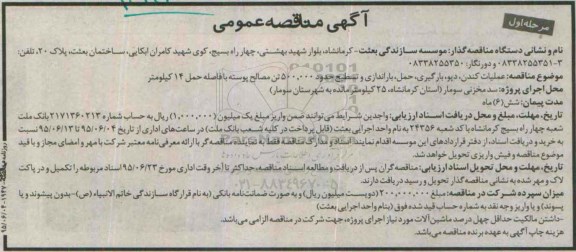 مرحله اول
آگهی مناقصه عمومی
نام و نشانی دستگاه مناقصه گذار: موسسه سازندگی بعثت- کرمانشاه، بلوار شهید بهشتی، چهار راه بسیج، کوی شهید کامران ابکایی، ساختمان بعثت، پلاک ۲۰، تلفن:
۳-۰۸۳۳۸۲۵۵۳۵۱ و دورنگار: ۰۸۳۳۸۲۵۵۳۵۰
موضوع مناقصه: عملیات کندن، دپو، بارگیری، حمل، باراندازی و تسطیح حدود ۵۰۰,۰۰۰ تن مصالح پوسته با فاصله حمل ۱۴ کیلومتر
محل اجرای پروژه: سد مخزنی سومار (استان کرمانشاه، ۲۵ کیلومتر مانده به شهرستان سومار)
مدت پیمان: شش (۶) ماه
تاریخ، مهلت، مبلغ و محل دریافت اسناد ارزیابی: واجدین شرایط می توانند ضمن واریز مبلغ یک میلیون (۱,۰۰۰,۰۰۰) ریال به حساب شماره ۲۱۷۱۳۶۰۲۱۳ بانک ملت
شعبه چهار راه بسیج کرمانشاه با کد شعبه ۲۴۳۵۶ به نام واحد اجرایی بعثت (قابل پرداخت در کلیه شعب بانک ملت) در ساعت های اداری از تاریخ ۹۵/۰۶/۰۴ تا ۹۵/۰۶/۱۳ نسبت
به خرید و دریافت اسناد، از دفتر قراردادهای این موسسه اقدام نمایند؛ اسناد و مدارک مناقصه فقط به نماینده مناقصه گر با ارائه معرفی نامه معتبر شرکت با مهر و امضای مجاز و با قید
موضوع مناقصه و فیش واریزی تحویل خواهد شد.
تاریخ، مهلت و محل تحویل اسناد ارزیابی: مناقصه گران پس از دریافت و مطالعه اسناد مناقصه، حداکثر تا آخر وقت اداری مورخ ۹۵/۰۶/۲۳ اسناد مربوطه را تکمیل و در پاکت
لاک و مهر شده به نشانی مناقصه گذار تحویل و رسید دریافت دارند.
میزان سپرده شرکت در مناقصه: مبلغ ۲۰۰,۰۰۰,۰۰۰ (دویست میلیون ریال) و به صورت ضمانت نامه بانکی (به نام قرارگاه سازندگی خاتم الانبیاء (ص)- بدون پیشوند و یا
پسوند) و یا واریز وجه نقد به شماره حساب قید شده فوق (بنام واحد اجرایی بعثت)
-داشتن مالکیت حداقل چهل درصد ماشین آلات مورد نیاز اجرای پروژه، جهت شرکت در مناقصه الزامی می باشد.
هزینه چاپ آگهی به عهده برنده مناقصه می باشد.